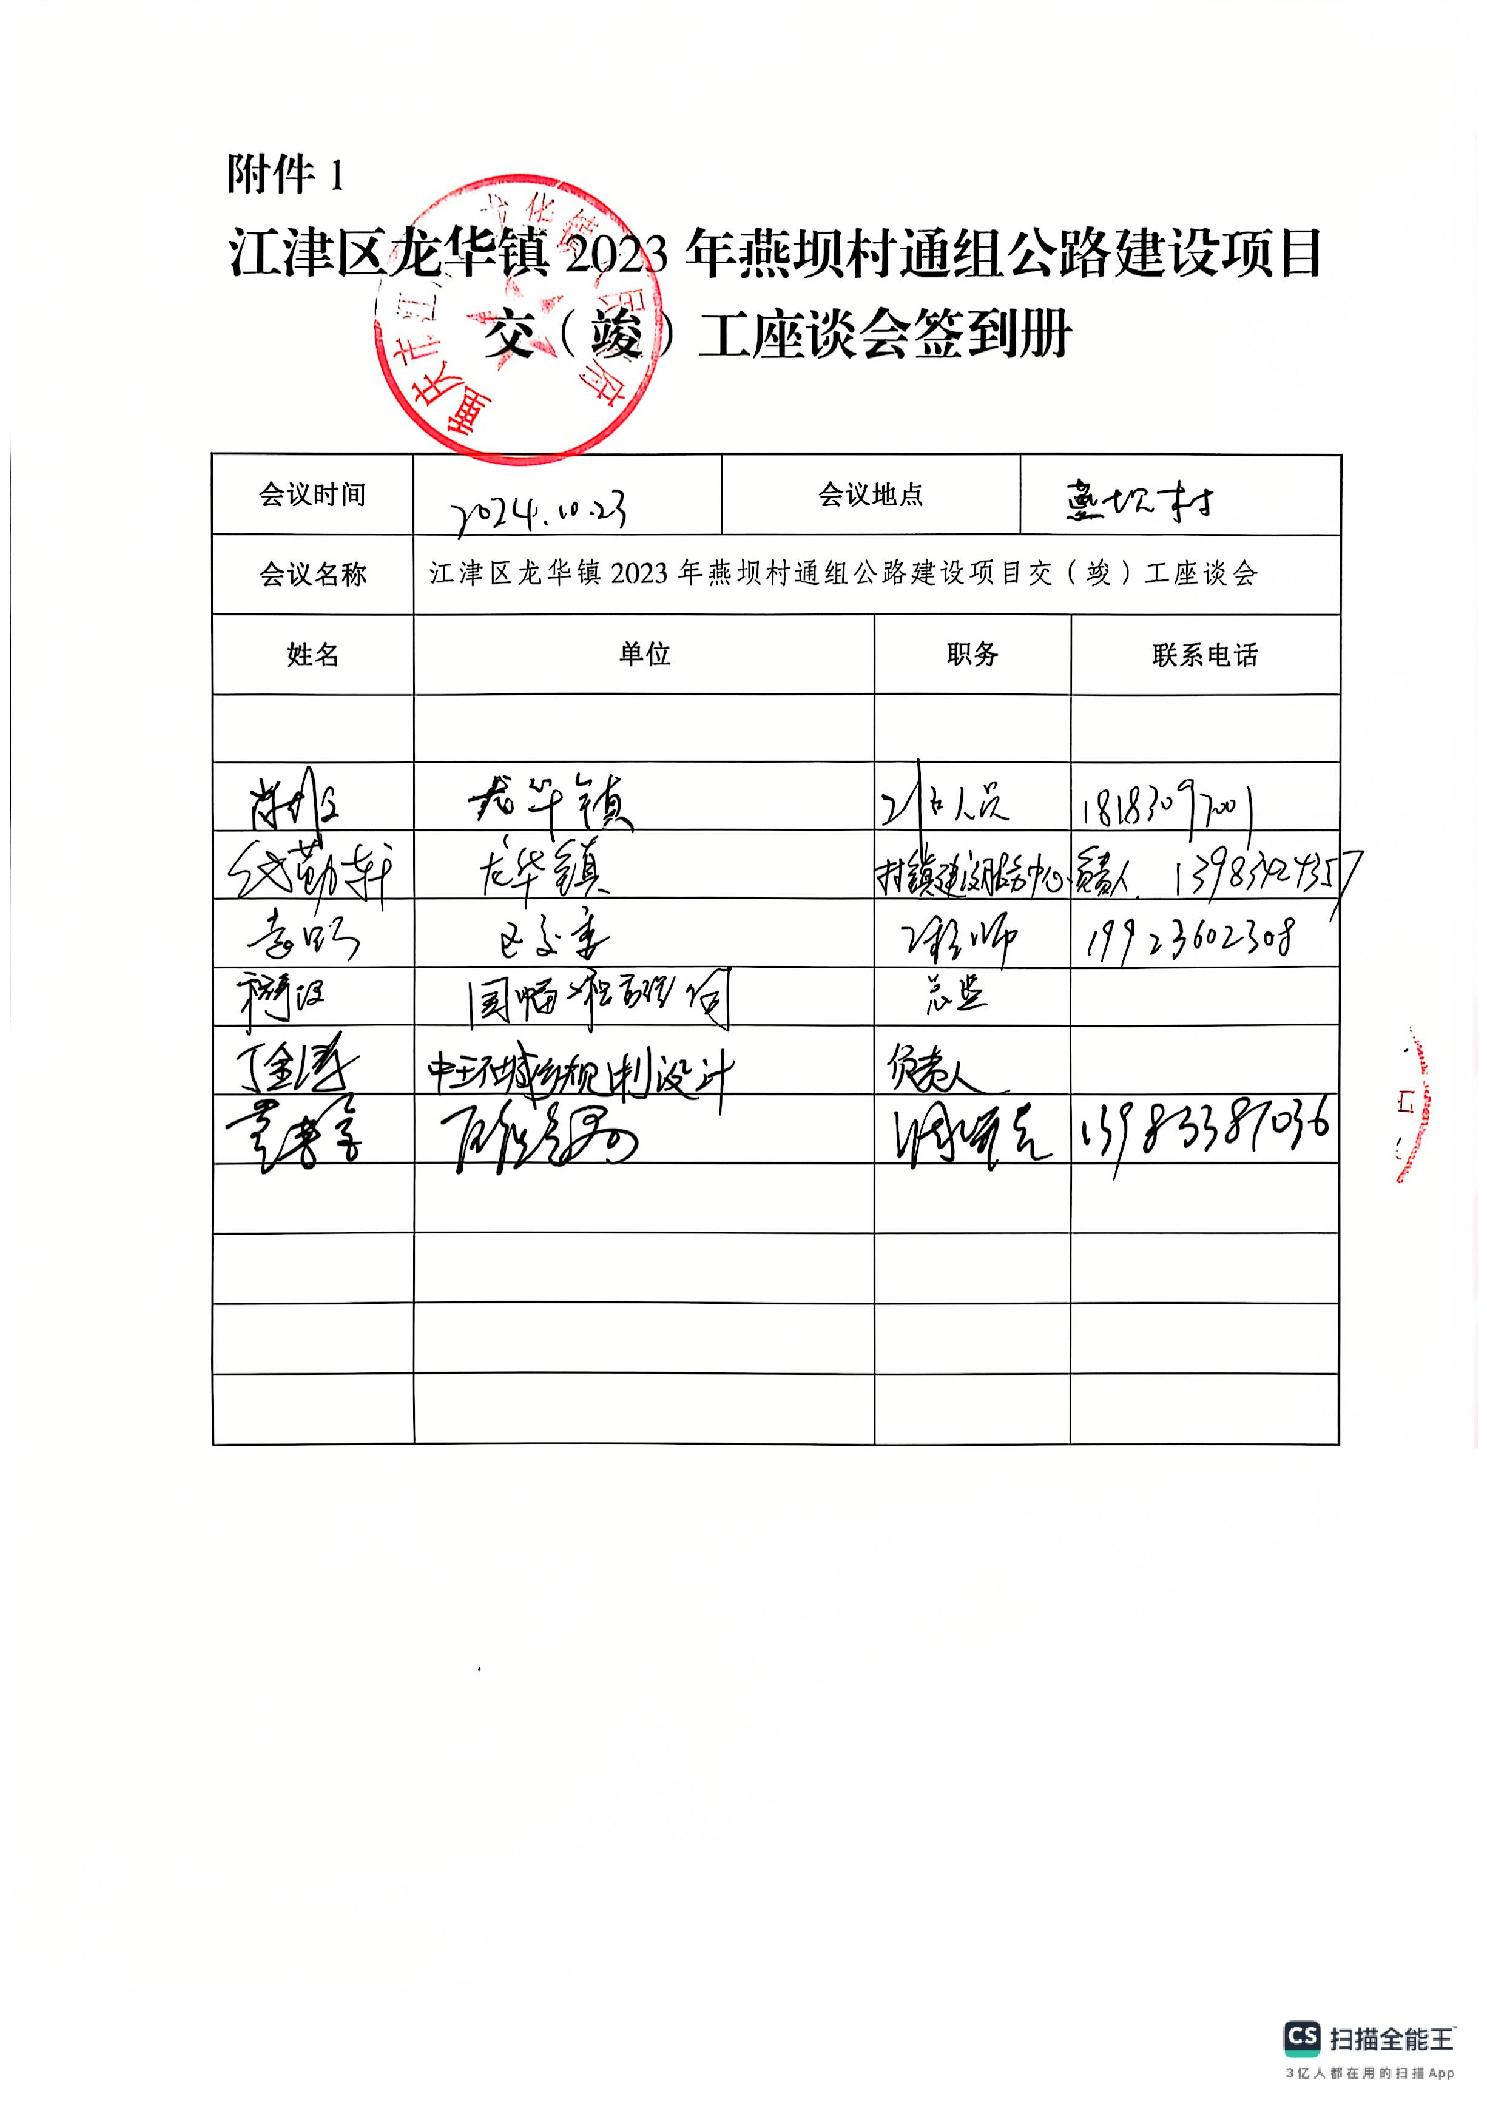 附件 1
江津区龙华镇 2023 年燕坝村通组公路建设项目
交（竣）工座谈会签到册
重庆市江 龙华镇 府
会议时间 2024.10.23 会议地点 燕坝村
会议名称 江津区龙华镇 2023 年燕坝村通组公路建设项目交（竣）工座谈会
姓名 单位 职务 联系电话
龙华镇 工作人员 18183097001
勤轩 龙华镇 村镇建设服务中心负责人 13983424357
区交委 工程师 19923602308
总监
丁金 中 城乡规划设计 负责人
13983387036
CS 扫描全能王
3亿人都在用的扫描App